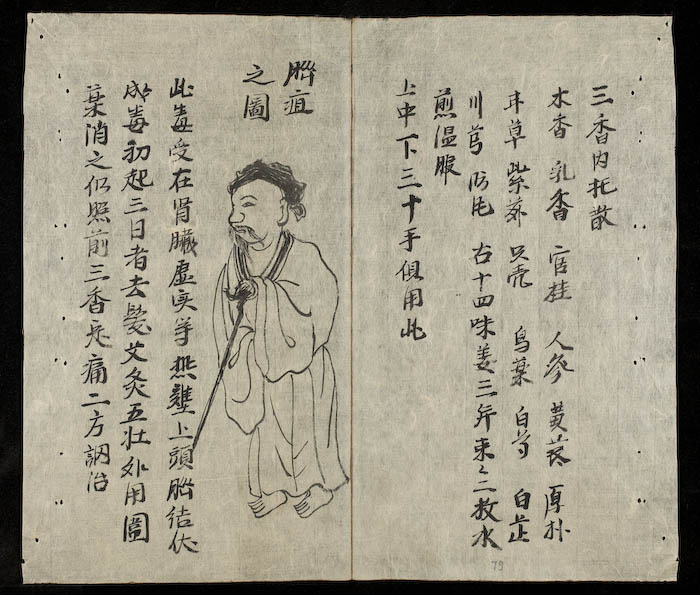 三香内托散
木香 乳香 官桂 人參 黄芪 厚朴
甘草 紫蘇 只壳 烏藥 白芍 白芷
川芎 防风 右十四味姜三斤枣二枚水
煎温服
上中下三十手俱用此
腦疽
之圖
此毒受在肾臟虚实等热壅上頭腦结伏
成毒初起三日者去髮艾灸五壮外用圍
藥消之仍照前三香定痛二方調治
79